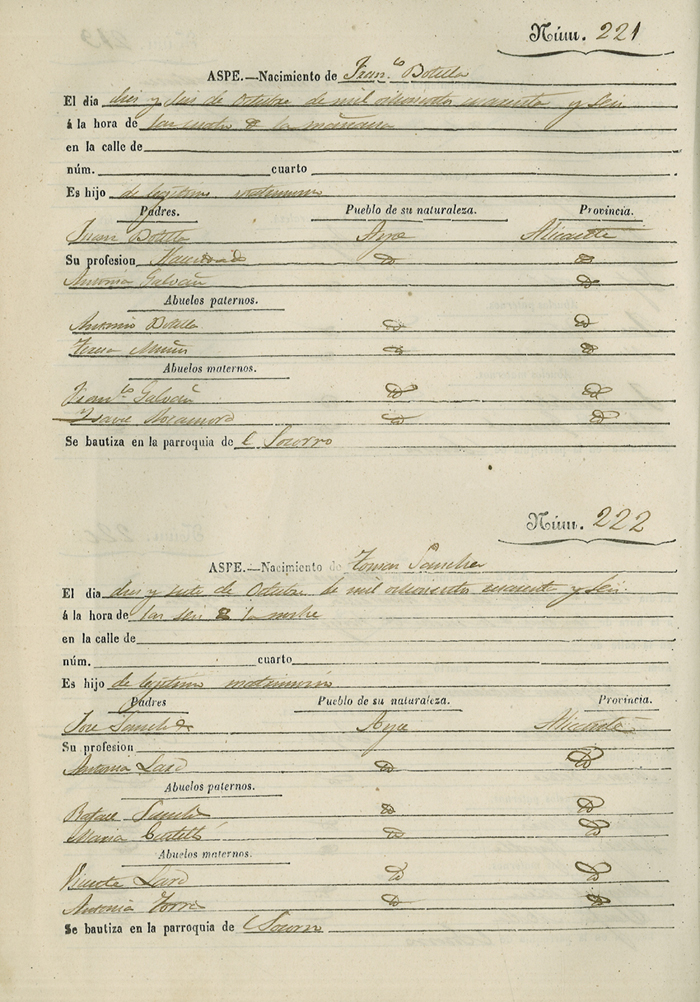 Núm. 221
ASPE.—Nacimiento de Fran.co Botella
El dia diez y seis de Octubre de mil ochocientos cuarenta y seis
á la hora de las cuatro de la mañana
en la calle de
núm. cuarto
Es hijo de legitimo matrimonio
Padres. Pueblo de su naturaleza. Provincia.
Juan Botella Aspe Alicante
Su profesion
Antonia Galvañ
Abuelos paternos.
Antonio Botella
Teresa
Abuelos maternos.
Fran.co Galvañ
Mocamora
Se bautiza en la parroquia de el Socorro
Núm. 222
ASPE.—Nacimiento de Tomas Sanchez
El dia diez y siete de Octubre de mil ochocientos cuarenta y seis
á la hora de las seis de la noche
en la calle de
núm. cuarto
Es hijo de legitimo matrimonio
Padres Pueblo de su naturaleza. Provincia.
Jose Sanchez Aspe Alicante
Su profesion
Antonia
Abuelos paternos.
Rafael Sanchez
Maria
Abuelos maternos.
Vicente
Antonia
Se bautiza en la parroquia de Socorro